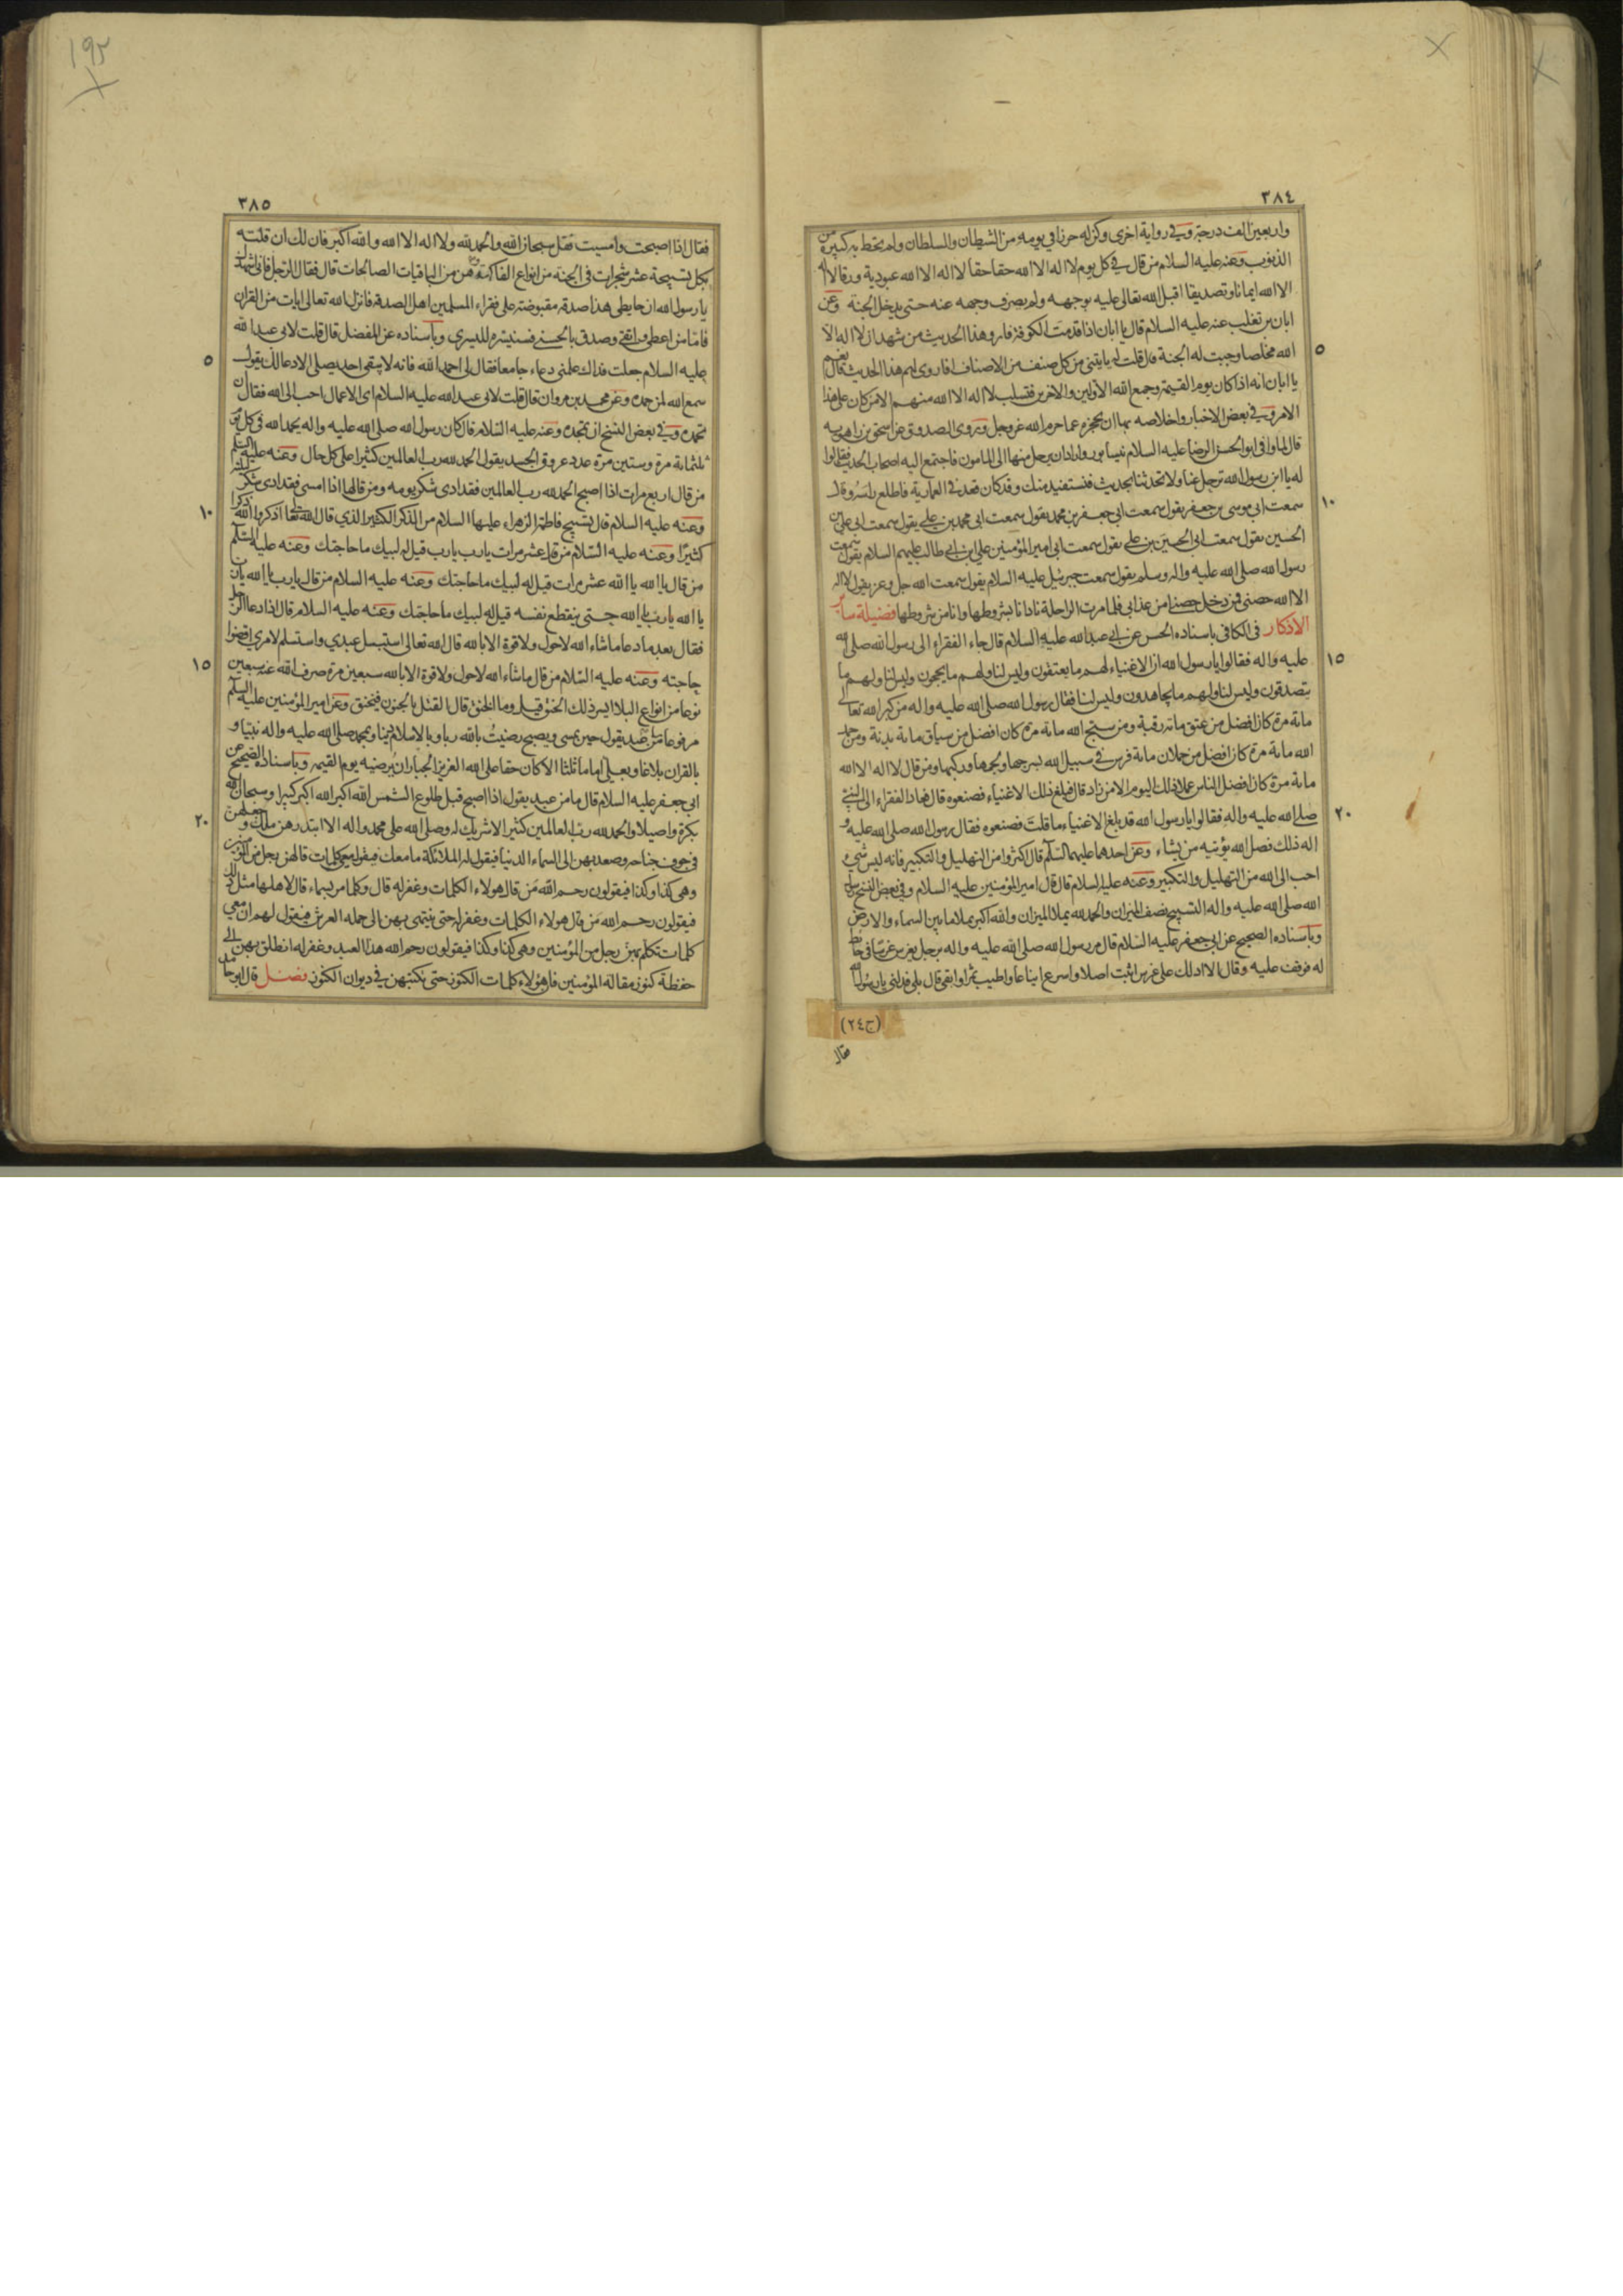 ٣٨٤
واربعين الف درجة وفي رواية اخرى وكن له حرزا في يومه من الشيطان والسلطان ولم تحط به كبيرة من
الذنوب وعنه عليه السلام من قال في كل يوم لا اله الا الله حقا حقا لا اله الا الله عبودية ورقا لا اله
الا الله ايمانا وتصديقا اقبل الله تعالى عليه بوجهه ولم يصرف وجهه عنه حتى يدخل الجنة وعن
ابان بن تغلب عنه عليه السلام قال يا ابان اذا قدمت الكوفة فارو هذا الحديث من شهد ان لا اله الا
٥
الله مخلصا وجبت له الجنة قال قلت له يايتني من كل صنف من الاصناف فاروى لهم هذا الحديث قال نعم
يا ابان انه اذا كان يوم القيمة وجمع الله الاولين والاخرين فتسلب لا اله الا الله منهم الا من كان على هذا
الامر وفي بعض الاخبار واخلاصه بها ان يحجزه عما حرم الله عز وجل وروى الصدوق عن اسحق بن راهويه
قال لما وافى ابو الحسن الرضا عليه السلام نيسابور واراد ان يرحل منها الى المامون فاجتمع اليه اصحاب الحديث فقالوا
له يا ابن رسول الله ترحل عنا ولا تحدثنا بحديث فنستفيد منك وقد كان قعد في العمارية فاطلع راسه وقال
١٠
سمعت ابي موسى بن جعفر يقول سمعت ابي جعفر بن محمد يقول سمعت ابي محمد بن علي يقول سمعت ابي علي بن
الحسين يقول سمعت ابي الحسين بن علي يقول سمعت ابي امير المؤمنين علي بن ابي طالب عليهم السلام يقول سمعت
رسول الله صلى الله عليه واله وسلم يقول سمعت جبرئيل عليه السلام يقول سمعت الله جل وعز يقول لا اله
الا الله حصني فمن دخل حصني امن عذابي فلما مرت الراحلة نادانا بشروطها وانا من شروطها فضيلة ساير
الاذكار في الكافي باسناده الحسن عن ابي عبد الله عليه السلام قال جاء الفقراء الى رسول الله صلى الله
١٥
عليه واله فقالوا يا رسول الله ان الاغنياء لهم ما يعتقون وليس لنا ولهم ما يحجون وليس لنا ولهم ما
يتصدقون وليس لنا ولهم ما يجاهدون وليس لنا فقال رسول الله صلى الله عليه واله من كبر الله تعالى
مائة مرة كان افضل من عتق مائة رقبة ومن سبح الله مائة مرة كان افضل من سياق مائة بدنة ومن حمد
الله مائة مرة كان افضل من حملان مائة فرس في سبيل الله بسرجها ولجمها وركبها ومن قال لا اله الا الله
مائة مرة كان افضل الناس عملا ذلك اليوم الا من زاد قال فبلغ ذلك الاغنياء فصنعوه قال فعاد الفقراء الى النبي
٢٠
صلى الله عليه واله فقالوا يا رسول الله قد بلغ الاغنياء ما قلت فصنعوه فقال رسول الله صلى الله عليه و
اله ذلك فضل الله يؤتيه من يشاء وعن احدهما عليهما السلام قال اكثروا من التهليل والتكبير فانه ليس شيء
احب الى الله من التهليل والتكبير وعنه عليه السلام قال قال امير المؤمنين عليه السلام وفي بعض النسخ رسول
الله صلى الله عليه واله التسبيح نصف الميزان والحمد لله يملا الميزان والله اكبر يملا ما بين السماء والارض
وباسناده الصحيح عن ابي جعفر عليه السلام قال مر رسول الله صلى الله عليه واله برجل يغرس غرسا في حائط
له فوقف عليه وقال الا ادلك على غرس اثبت اصلا واسرع ايناعا واطيب ثمرا وابقى قال بلى فدلني يا رسول الله
(ج٢٤)
فقال
٣٨٥
فقال اذا اصبحت وامسيت فقل سبحان الله والحمد لله ولا اله الا الله والله اكبر فان لك ان قلته
بكل تسبيحة عشر شجرات في الجنة من انواع الفاكهة وهن من الباقيات الصالحات قال فقال الرجل فاني اشهدك
يا رسول الله ان حايطي هذا صدقة مقبوضة على فقراء المسلمين اهل الصدقة فانزل الله تعالى ايات من القران
فاما من اعطى واتقى وصدق بالحسنى فسنيسره لليسرى وباسناده عن المفضل قال قلت لابي عبد الله
٥
عليه السلام جعلت فداك علمني دعاء جامعا فقال لي احمد الله فانه لا يبقى احد يصلي الا دعا لك يقول
سمع الله لمن حمده وعن محمد بن مروان قال قلت لابي عبد الله عليه السلام اي الاعمال احب الى الله فقال ان
تحمده وفي بعض النسخ ان تمجده وعنه عليه السلام قال كان رسول الله صلى الله عليه واله يحمد الله في كل يوم
ثلثمائة مرة وستين مرة عدد عروق الجسد يقول الحمد لله رب العالمين كثيرا على كل حال وعنه عليه السلم
من قال اربع مرات اذا اصبح الحمد لله رب العالمين فقد ادى شكر يومه ومن قالها اذا امسى فقد ادى شكر ليلته
١٠
وعنه عليه السلام قال تسبيح فاطمة الزهراء عليها السلام من الذكر الكثير الذي قال الله تعالى اذكروا الله ذكرا
كثيرا وعنه عليه السلام من قال عشر مرات يا رب يا رب قيل له لبيك ما حاجتك وعنه عليه السلم
من قال يا الله يا الله عشر مرات قيل له لبيك ما حاجتك وعنه عليه السلام من قال يا رب يا الله يا رب
يا الله يا رب يا الله حتى ينقطع نفسه قيل له لبيك ما حاجتك وعنه عليه السلام قال اذا دعا الرجل
فقال بعد ما دعا ما شاء الله لا حول ولا قوة الا بالله قال الله تعالى استبسل عبدي واستسلم لامري اقضوا
١٥
حاجته وعنه عليه السلام من قال ما شاء الله لا حول ولا قوة الا بالله سبعين مرة صرف الله عنه سبعين
نوعا من انواع البلا ايسر ذلك الخنق قيل وما الخنق قال لا يعتل بالجنون فيخنق وعن امير المؤمنين عليه السلم
مرفوعا ما من عبد يقول حين يمسي ويصبح رضيت بالله ربا وبالاسلام دينا وبمحمد صلى الله عليه واله نبيا و
بالقران بلاغا وبعلي اماما ثلثا الا كان حقا على الله العزيز الجبار ان يرضيه يوم القيمة وباسناده الصحيح عن
ابي جعفر عليه السلام قال ما من عبد يقول اذا اصبح قبل طلوع الشمس الله اكبر الله اكبر كبيرا وسبحان الله
٢٠
بكرة واصيلا والحمد لله رب العالمين كثيرا لا شريك له وصلى الله على محمد واله الا ابتدرهن ملك وجعلهن
في جوف جناحه وصعد بهن الى السماء الدنيا فيقول له الملائكة ما معك فيقول معي كلمات قالهن رجل من المؤمنين
وهي كذا وكذا فيقولون رحم الله من قال هؤلاء الكلمات وغفر له قال وكلما مر بسماء قال لاهلها مثل ذلك
فيقولون رحم الله من قال هؤلاء الكلمات وغفر له حتى ينتهي بهن الى حملة العرش فيقول لهم ان معي
كلمات تكلم بهن رجل من المؤمنين وهي كذا وكذا فيقولون رحم الله هذا العبد وغفر له انطلق بهن الى
حفظة كنوز مقالة المؤمنين فان هؤلاء كلمات الكنوز حتى تكتبهن في ديوان الكنوز فصل قال ابو حامد